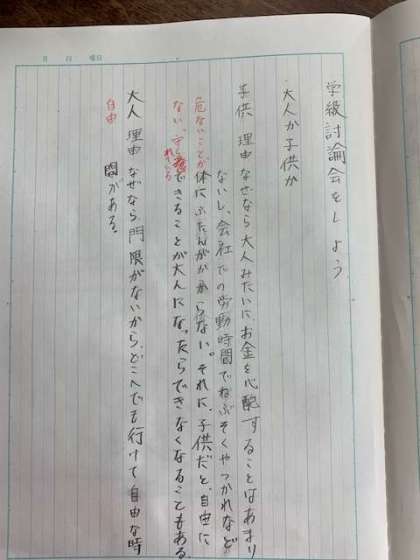 学級討論会をしよう
大人か子供か
子供 理由 なぜなら大人みたいに、お金を心配することはあまり
ないし、会社での労動時間でねぶそくやつかれなど
体にふたんがかからない。それに、子供だと、自由に
危ないことが
できることが大人になったらできなくなることもある
ない、守られている
大人 理由 なぜなら、門限がないから、どこへでも行けて自由な時
自由
間がある。
月 日 曜日